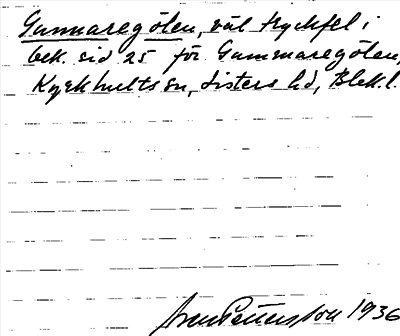 Gunnaregölen, väl tryckfel i
bek. sid 25 för Gummaregölen,
Kyrkhults sn, Listers hd, Blek. l.
Sven Pettersson 1936